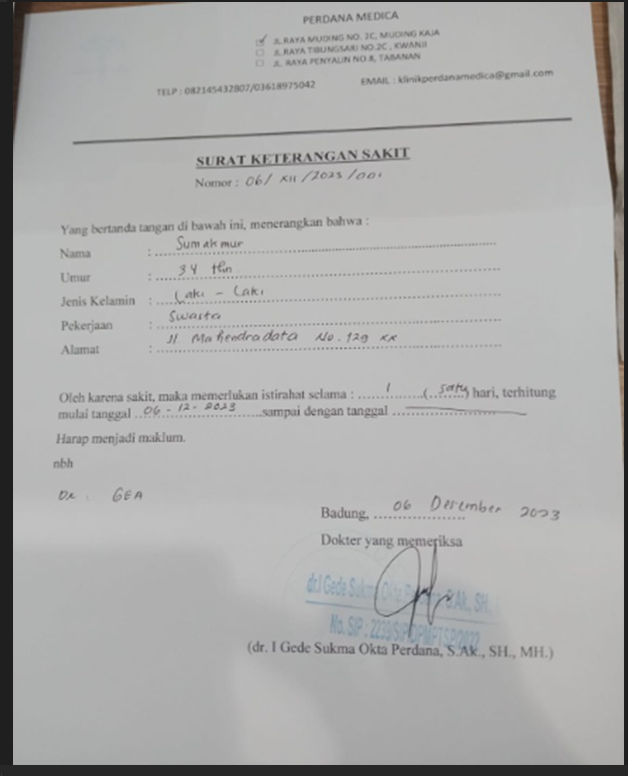 PERDANA MEDICA
JL RAYA MUDING NO. 2C, MUDING KAJA
JL. RAYA TIBUNGSARI NO.2C , KWANJI
JL. RAYA PENYALIN NO.8, TABANAN
TELP : 082145432807/03618975042 EMAIL : klinikperdanamedica@gmail.com
SURAT KETERANGAN SAKIT
Nomor : 06/ XII /2023 /001
Yang bertanda tangan di bawah ini, menerangkan bahwa :
Nama : Sumakmur
Umur : 34 thn
Jenis Kelamin : Laki - Laki
Pekerjaan : Swasta
Alamat : Jl. Mahendradata No. 129 xx
Oleh karena sakit, maka memerlukan istirahat selama : 1 (satu) hari, terhitung
mulai tanggal 06 - 12 - 2023 sampai dengan tanggal
Harap menjadi maklum.
nbh
Dx : GEA
Badung, 06 Desember 2023
Dokter yang memeriksa
dr.I Gede Sukma Okta Perdana S.Ak., SH.,
No. SIP : 2239/SIP/DPMPTSP/2022
(dr. I Gede Sukma Okta Perdana, S.Ak., SH., MH.)